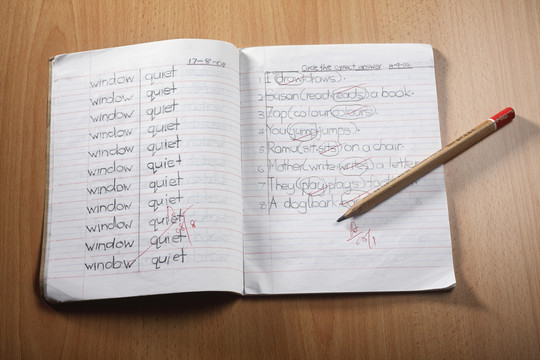 17-8-09
window quiet
window quiet
window quiet
window quiet
window quiet
window quiet
window quiet
window quiet
window quiet
window quiet
window quiet
window quiet
Circle the correct answer
1 I (draw draws).
2 Susan (read reads) a book.
3 Zap (colour colours).
4 You (jump jumps).
5 Ramu (sit sits) on a chair.
6 Mother (write writes) a letter
7 They (play plays)
8 A dog (bark